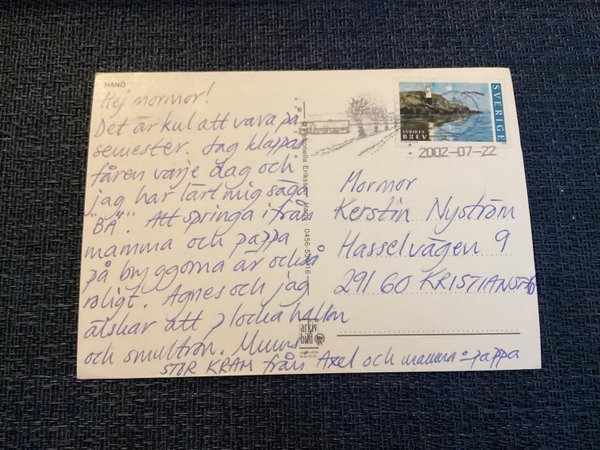 HANÖ
Hej mormor!
Det är kul att vara på
semester. Jag klappar
fåren varje dag och
jag har lärt mig säga
"BÄ". Att springa ifrån
mamma och pappa
på bryggorna är också
roligt. Agnes och jag
älskar att plocka hallon
och smultron. Mums
STOR KRAM från Axel och mamma o pappa
SVERIGE
INRIKES
BREV
2002-07-22
Mormor
Kerstin Nyström
Hasselvägen 9
291 60 KRISTIANSTAD